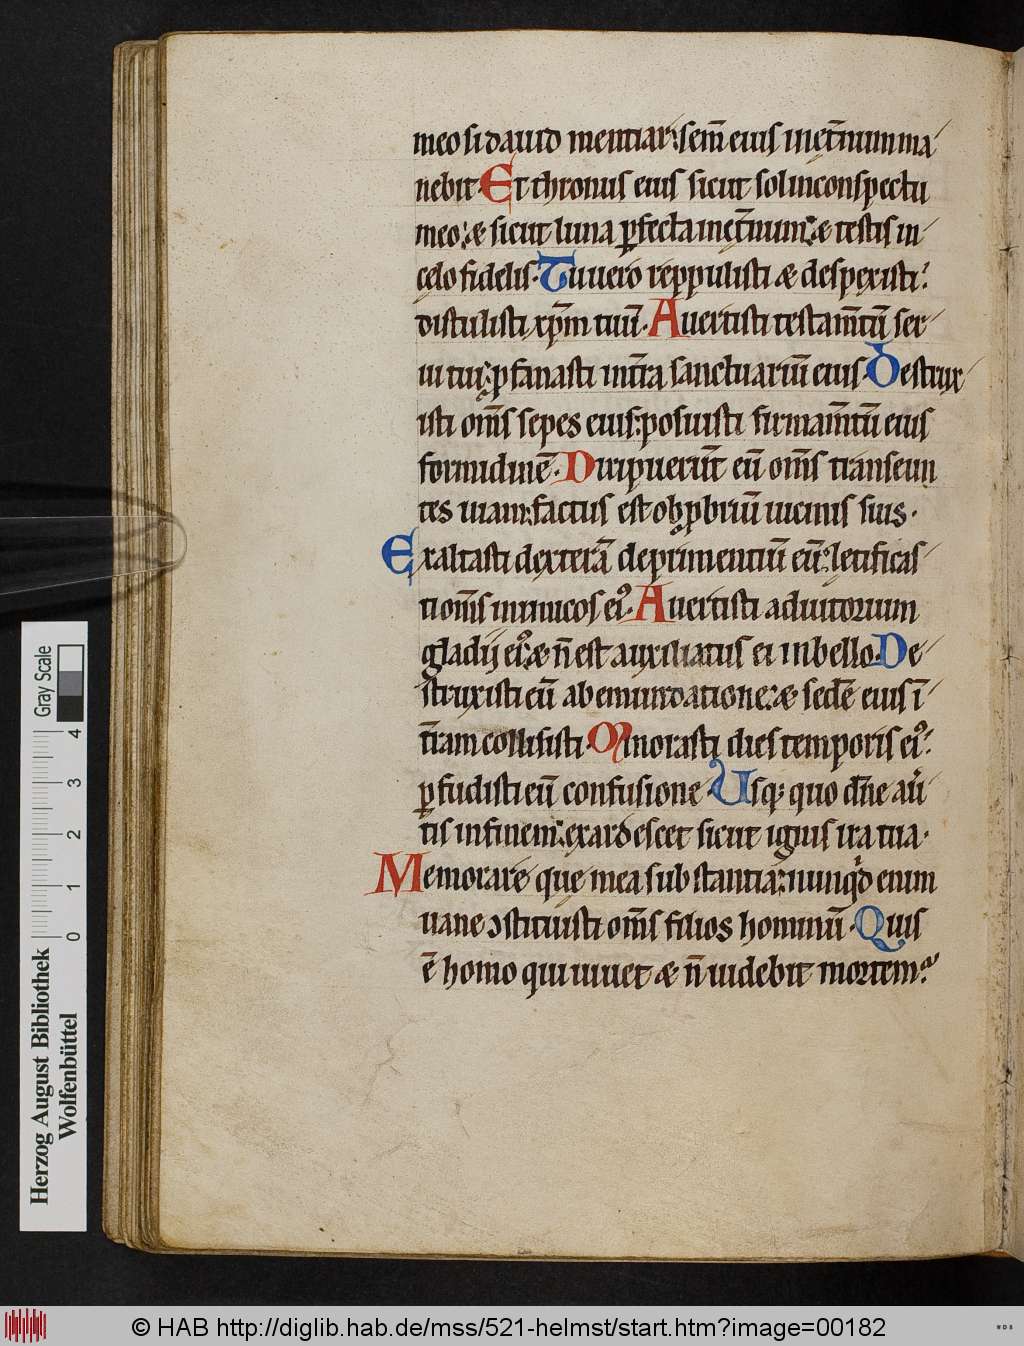 meo si dauid mentiar: sem̅ eius inet̅num ma
nebit. Et thronus eius sicut sol inconspectu
meo: & sicut luna ꝑfecta inet̅num: & testis in
celo fidelis. Tu uero reppulisti & despexisti:
distulisti xp̅m tuu̅. Auertisti testam̅tu̅ ser
ui tui: ꝓfanasti int̅ra sanctuariu̅ eius. Destrux
isti om̅s sepes eius: posuisti firmam̅tu̅ eius
formidine̅. Diripueru̅t eu̅ om̅s transeun
tes uiam: factus est obꝓbriu̅ uicinis suis.
Exaltasti dextera̅ deprimentiu̅ eu̅: letificas
ti om̅s inimicos eiꝰ. Auertisti adiutorium
gladij eiꝰ: & n̅ est auxiliatus ei inbello. De
struxisti eu̅ abemundatione: & sede̅ eius i̅
t̅ram collisisti. Minorasti dies temporis eiꝰ:
ꝑfudisti eu̅ confusione. Usq; quo dn̅e au̅
tis infinem: exardescet sicut ignis ira tua.
Memorare que mea substantia: nunq'd enim
uane ꝯstituisti om̅s filios hominu̅. Quis
e̅ homo qui uiuet & n̅ uidebit mortem:
Gray Scale
0 1 2 3 4
Herzog August Bibliothek
Wolfenbüttel
© HAB http://diglib.hab.de/mss/521-helmst/start.htm?image=00182
WDB